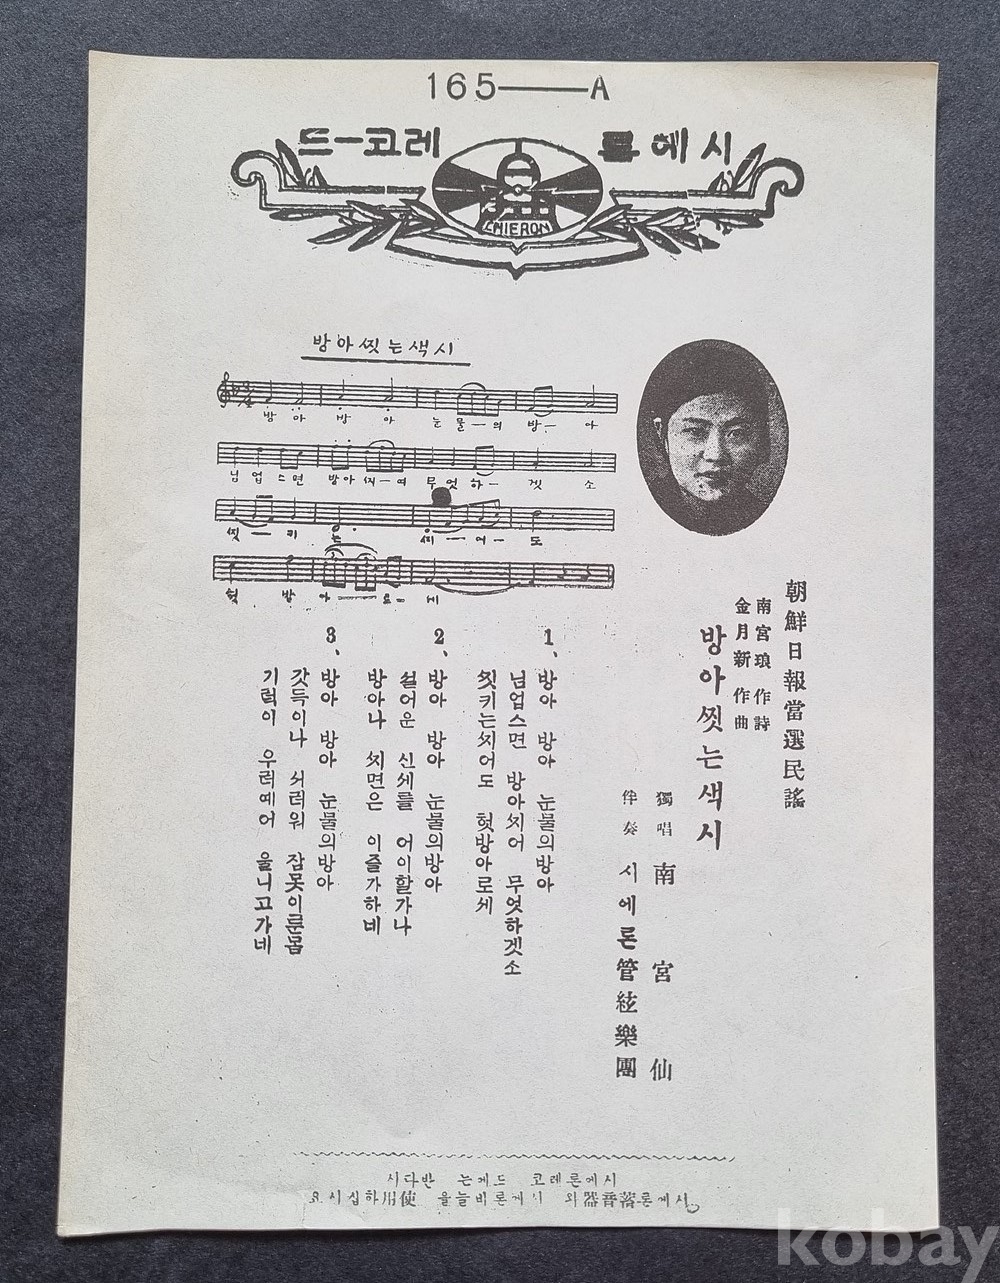 165——A
드ー코레 론에시
CHIERON
방아찟는색시
방 아 방 아 눈 물ー의 방ー 아
님 업 스면 방아 ᄶᅵー여 무 엇 하ー 겟 소
찟ー 키 는 ᄶᅵー어ー 도
헛 방 아ー로ー세
朝鮮日報當選民謠
南宮琅 作詩
金月新 作曲
방아찟는색시
獨唱 南宮仙
伴奏 시에론管絃樂團
1、 방아 방아 눈물의방아
님업스면 방아ᄶᅵ어 무엇하겟소
찟키는ᄶᅵ어도 헛방아로세
2、 방아 방아 눈물의방아
설어운 신세를 어이할가나
방아나 ᄶᅵ면은 이즐가하네
3、 방아 방아 눈물의방아
갓득이나 서러워 잠못이룬몸
기럭이 우러예어 울니고가네
시다반 는게드 코 레론에시
요시십하用使 을늘바론에시 와器音蓄론에시
kobay